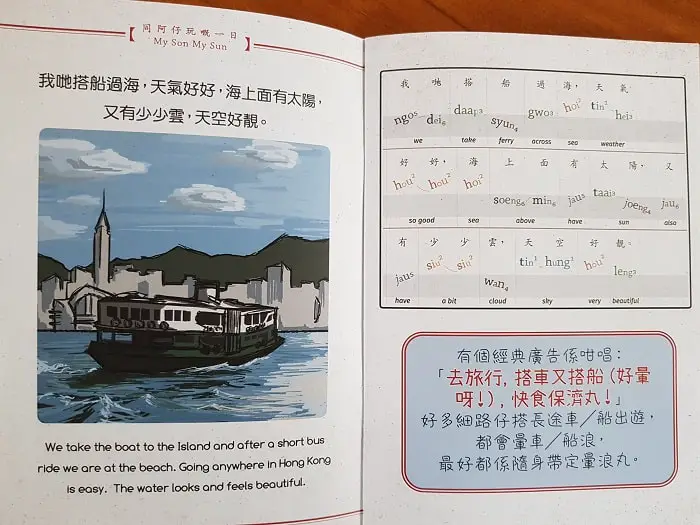 同阿仔玩嘅一日
My Son My Sun
我哋搭船過海，天氣好好，海上面有太陽，
又有少少雲，天空好靚。
We take the boat to the Island and after a short bus
ride we are at the beach. Going anywhere in Hong Kong
is easy. The water looks and feels beautiful.
我 哋 搭 船 過 海， 天 氣
ngo5 dei6 daap3 syun4 gwo3 hoi2 tin1 hei3
we take ferry across sea weather
好 好， 海 上 面 有 太 陽， 又
hou2 hou2 hoi2 soeng6 min6 jau5 taai3 joeng4 jau6
so good sea above have sun also
有 少 少 雲， 天 空 好 靚。
jau5 siu2 siu2 wan4 tin1 hung1 hou2 leng3
have a bit cloud sky very beautiful
有個經典廣告係咁唱：
「去旅行，搭車又搭船（好暈
呀！），快食保濟丸！」
好多細路仔搭長途車／船出遊，
都會暈車／船浪，
最好都係隨身帶定暈浪丸。